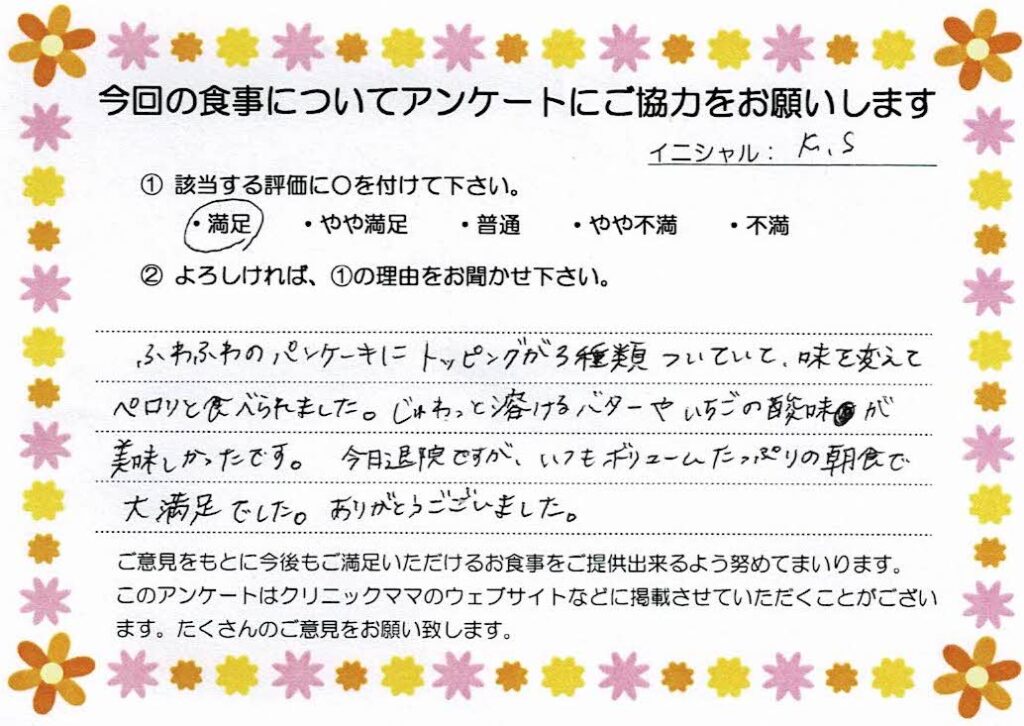 今回の食事についてアンケートにご協力をお願いします
イニシャル： K.S
① 該当する評価に○を付けて下さい。
・満足 ・やや満足 ・普通 ・やや不満 ・不満
② よろしければ、①の理由をお聞かせ下さい。
ふわふわのパンケーキにトッピングが3種類ついていて、味を変えて
ペロリと食べられました。じゅわっと溶けるバターやいちごの酸味が
美味しかったです。 今日退院ですが、いつもボリュームたっぷりの朝食で
大満足でした。ありがとうございました。
ご意見をもとに今後もご満足いただけるお食事をご提供出来るよう努めてまいります。
このアンケートはクリニックママのウェブサイトなどに掲載させていただくことがござい
ます。たくさんのご意見をお願い致します。